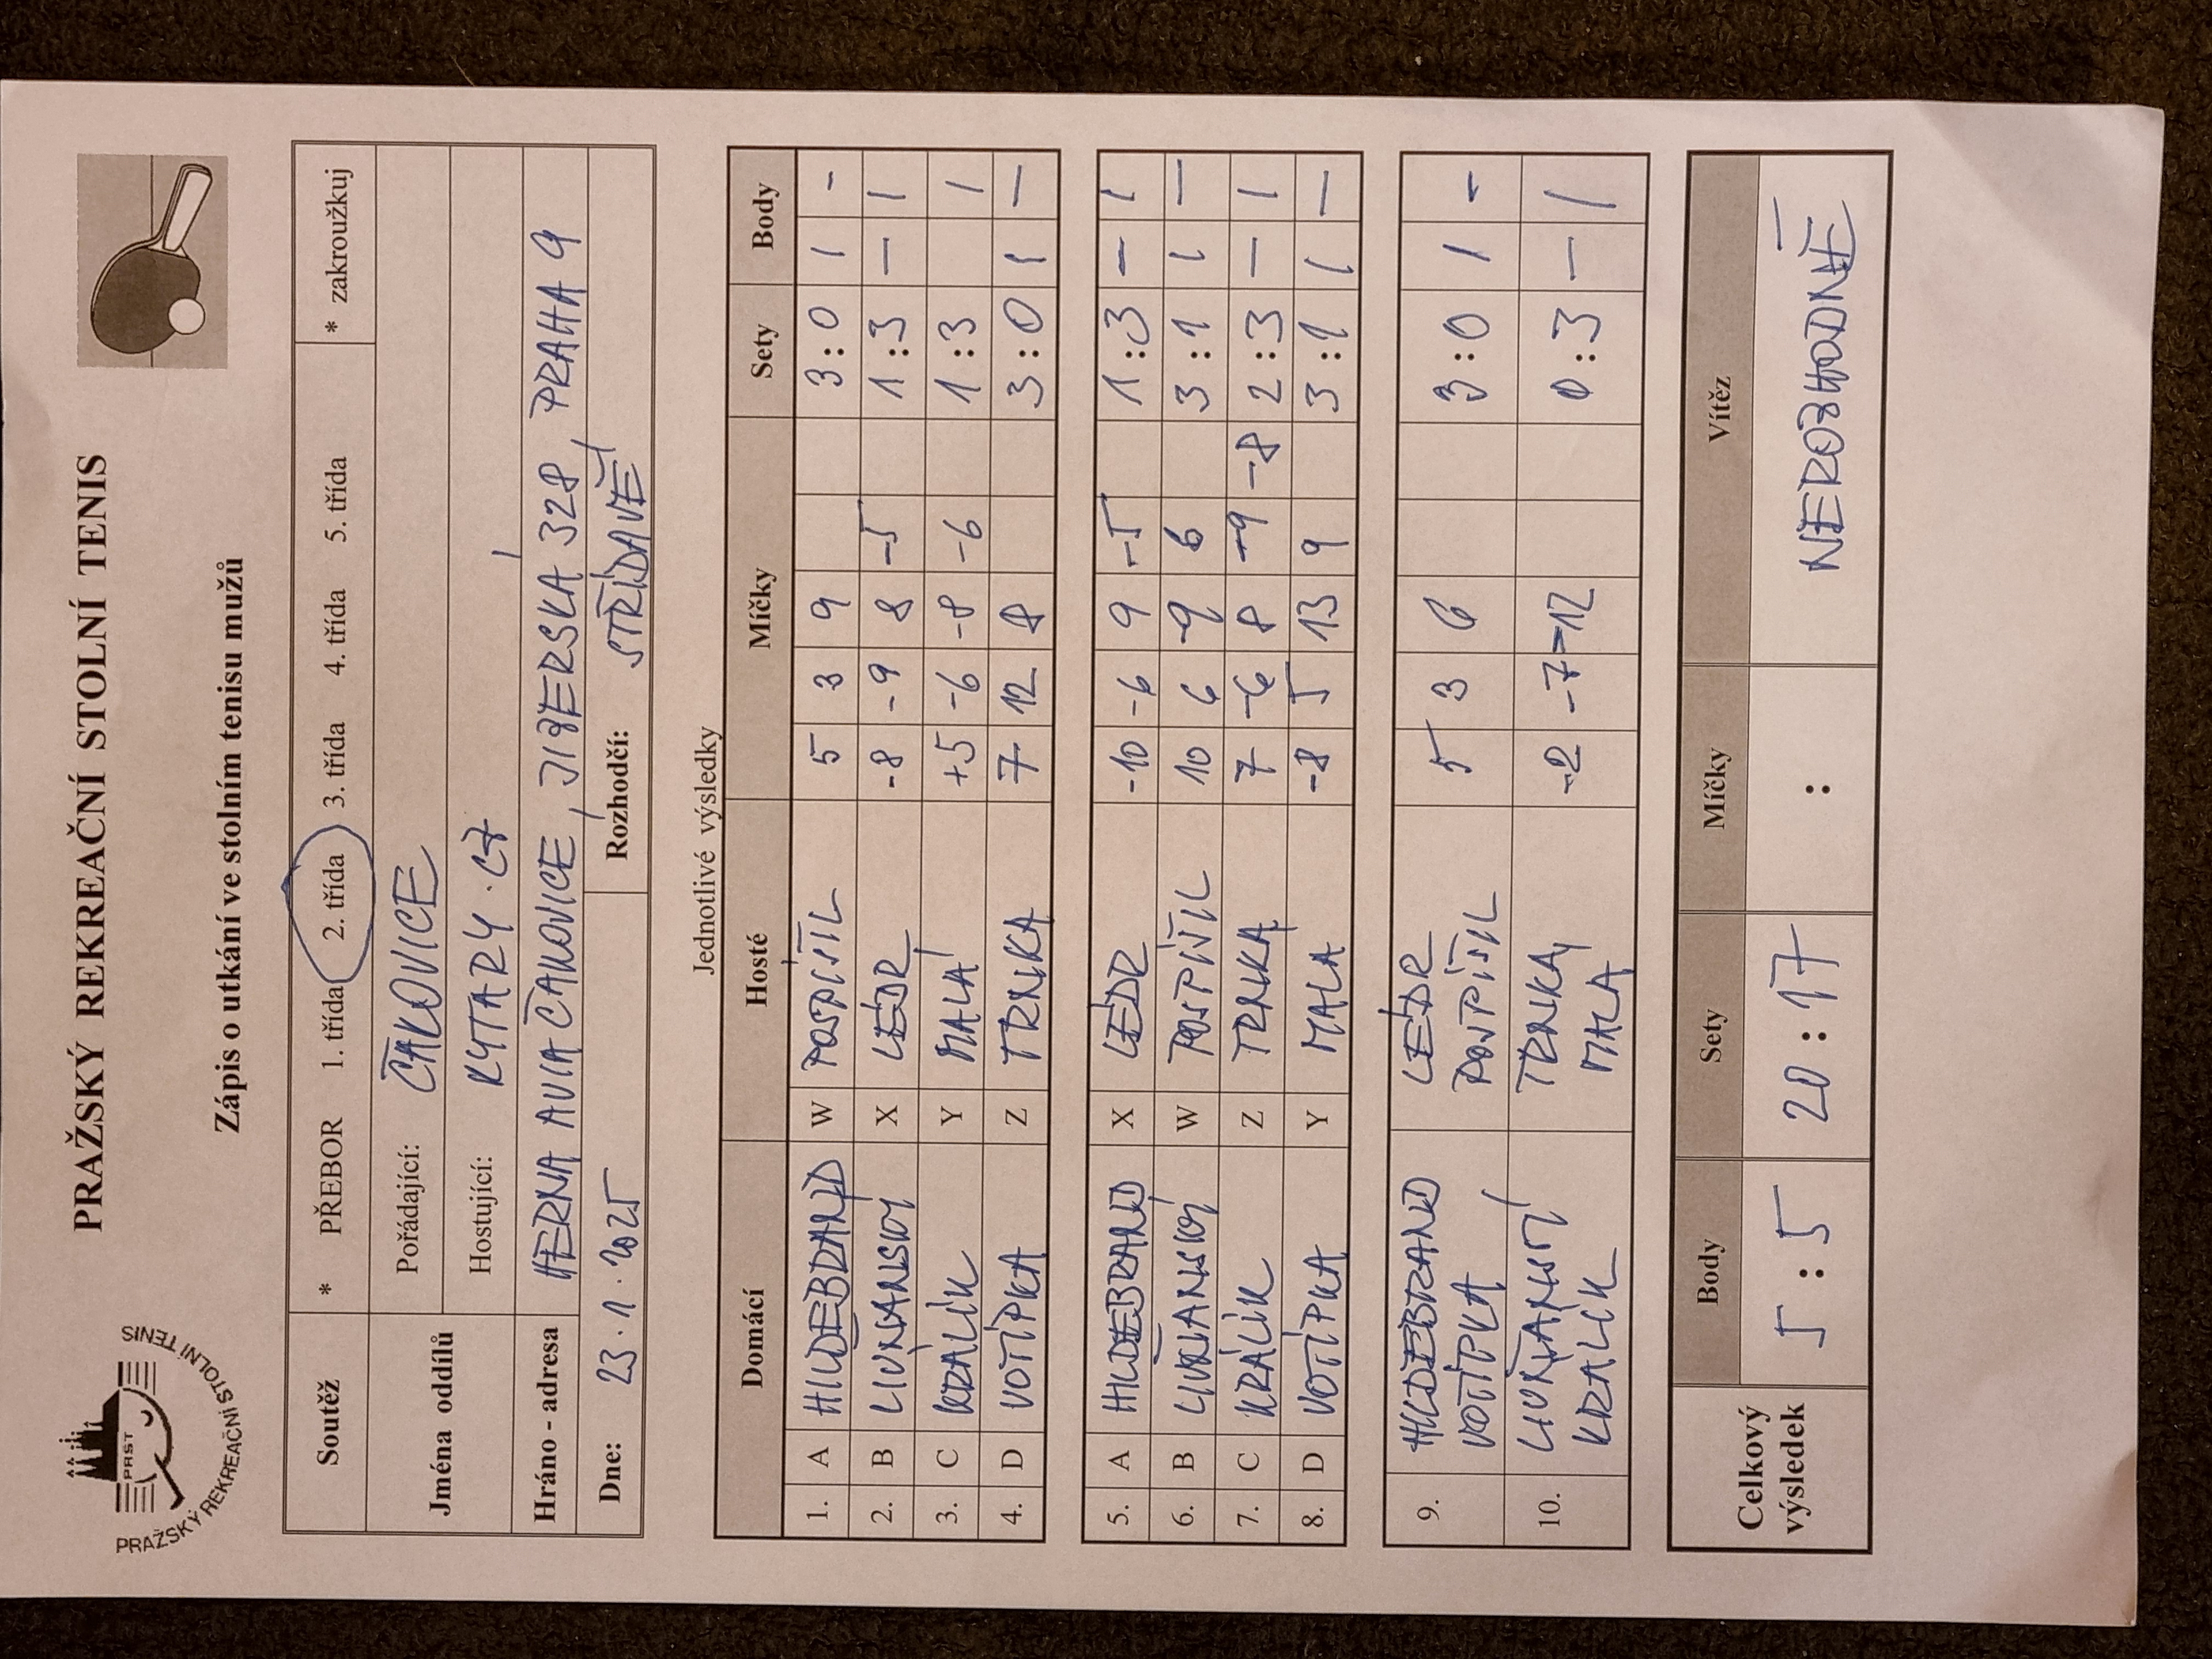 PRAŽSKÝ REKREAČNÍ STOLNÍ TENIS
PRST
PRAŽSKÝ REKREAČNÍ STOLNÍ TENIS
Zápis o utkání ve stolním tenisu mužů
Soutěž * PŘEBOR 1. třída 2. třída 3. třída 4. třída 5. třída * zakroužkuj
Jména oddílů Pořádající: ČAKOVICE
Hostující: KYTARY.CZ
Hráno - adresa HERNA AVIA ČAKOVICE, JIZERSKÁ 328, PRAHA 9
Dne: 23.1.2025 Rozhodčí: STŘÍDAVĚ
Jednotlivé výsledky
Domácí Hosté Míčky Sety Body
1. A HILDEBRAND W POSPÍŠIL 5 3 9 3:0 1 -
2. B LIVŇANSKÝ X LÉDR -8 -9 8 -5 1:3 - 1
3. C KRÁLÍK Y MALÁ +5 -6 -8 -6 1:3 1
4. D VOTÍPKA Z TRNKA 7 12 8 3:0 1 -
5. A HILDEBRAND X LÉDR -10 -6 9 -5 1:3 - 1
6. B LIVŇANSKÝ W POSPÍŠIL 10 6 -9 6 3:1 1 -
7. C KRÁLÍK Z TRNKA 7 -6 8 -9 -8 2:3 - 1
8. D VOTÍPKA Y MALÁ -8 5 13 9 3:1 1 -
9. HILDEBRAND LÉDR 5 3 6 3:0 1 -
VOTÍPKA POSPÍŠIL
10. LIVŇANSKÝ TRNKA -2 -7 -12 0:3 - 1
KRÁLÍK MALÁ
Celkový výsledek Body Sety Míčky Vítěz
5:5 20:17 : NEROZHODNĚ